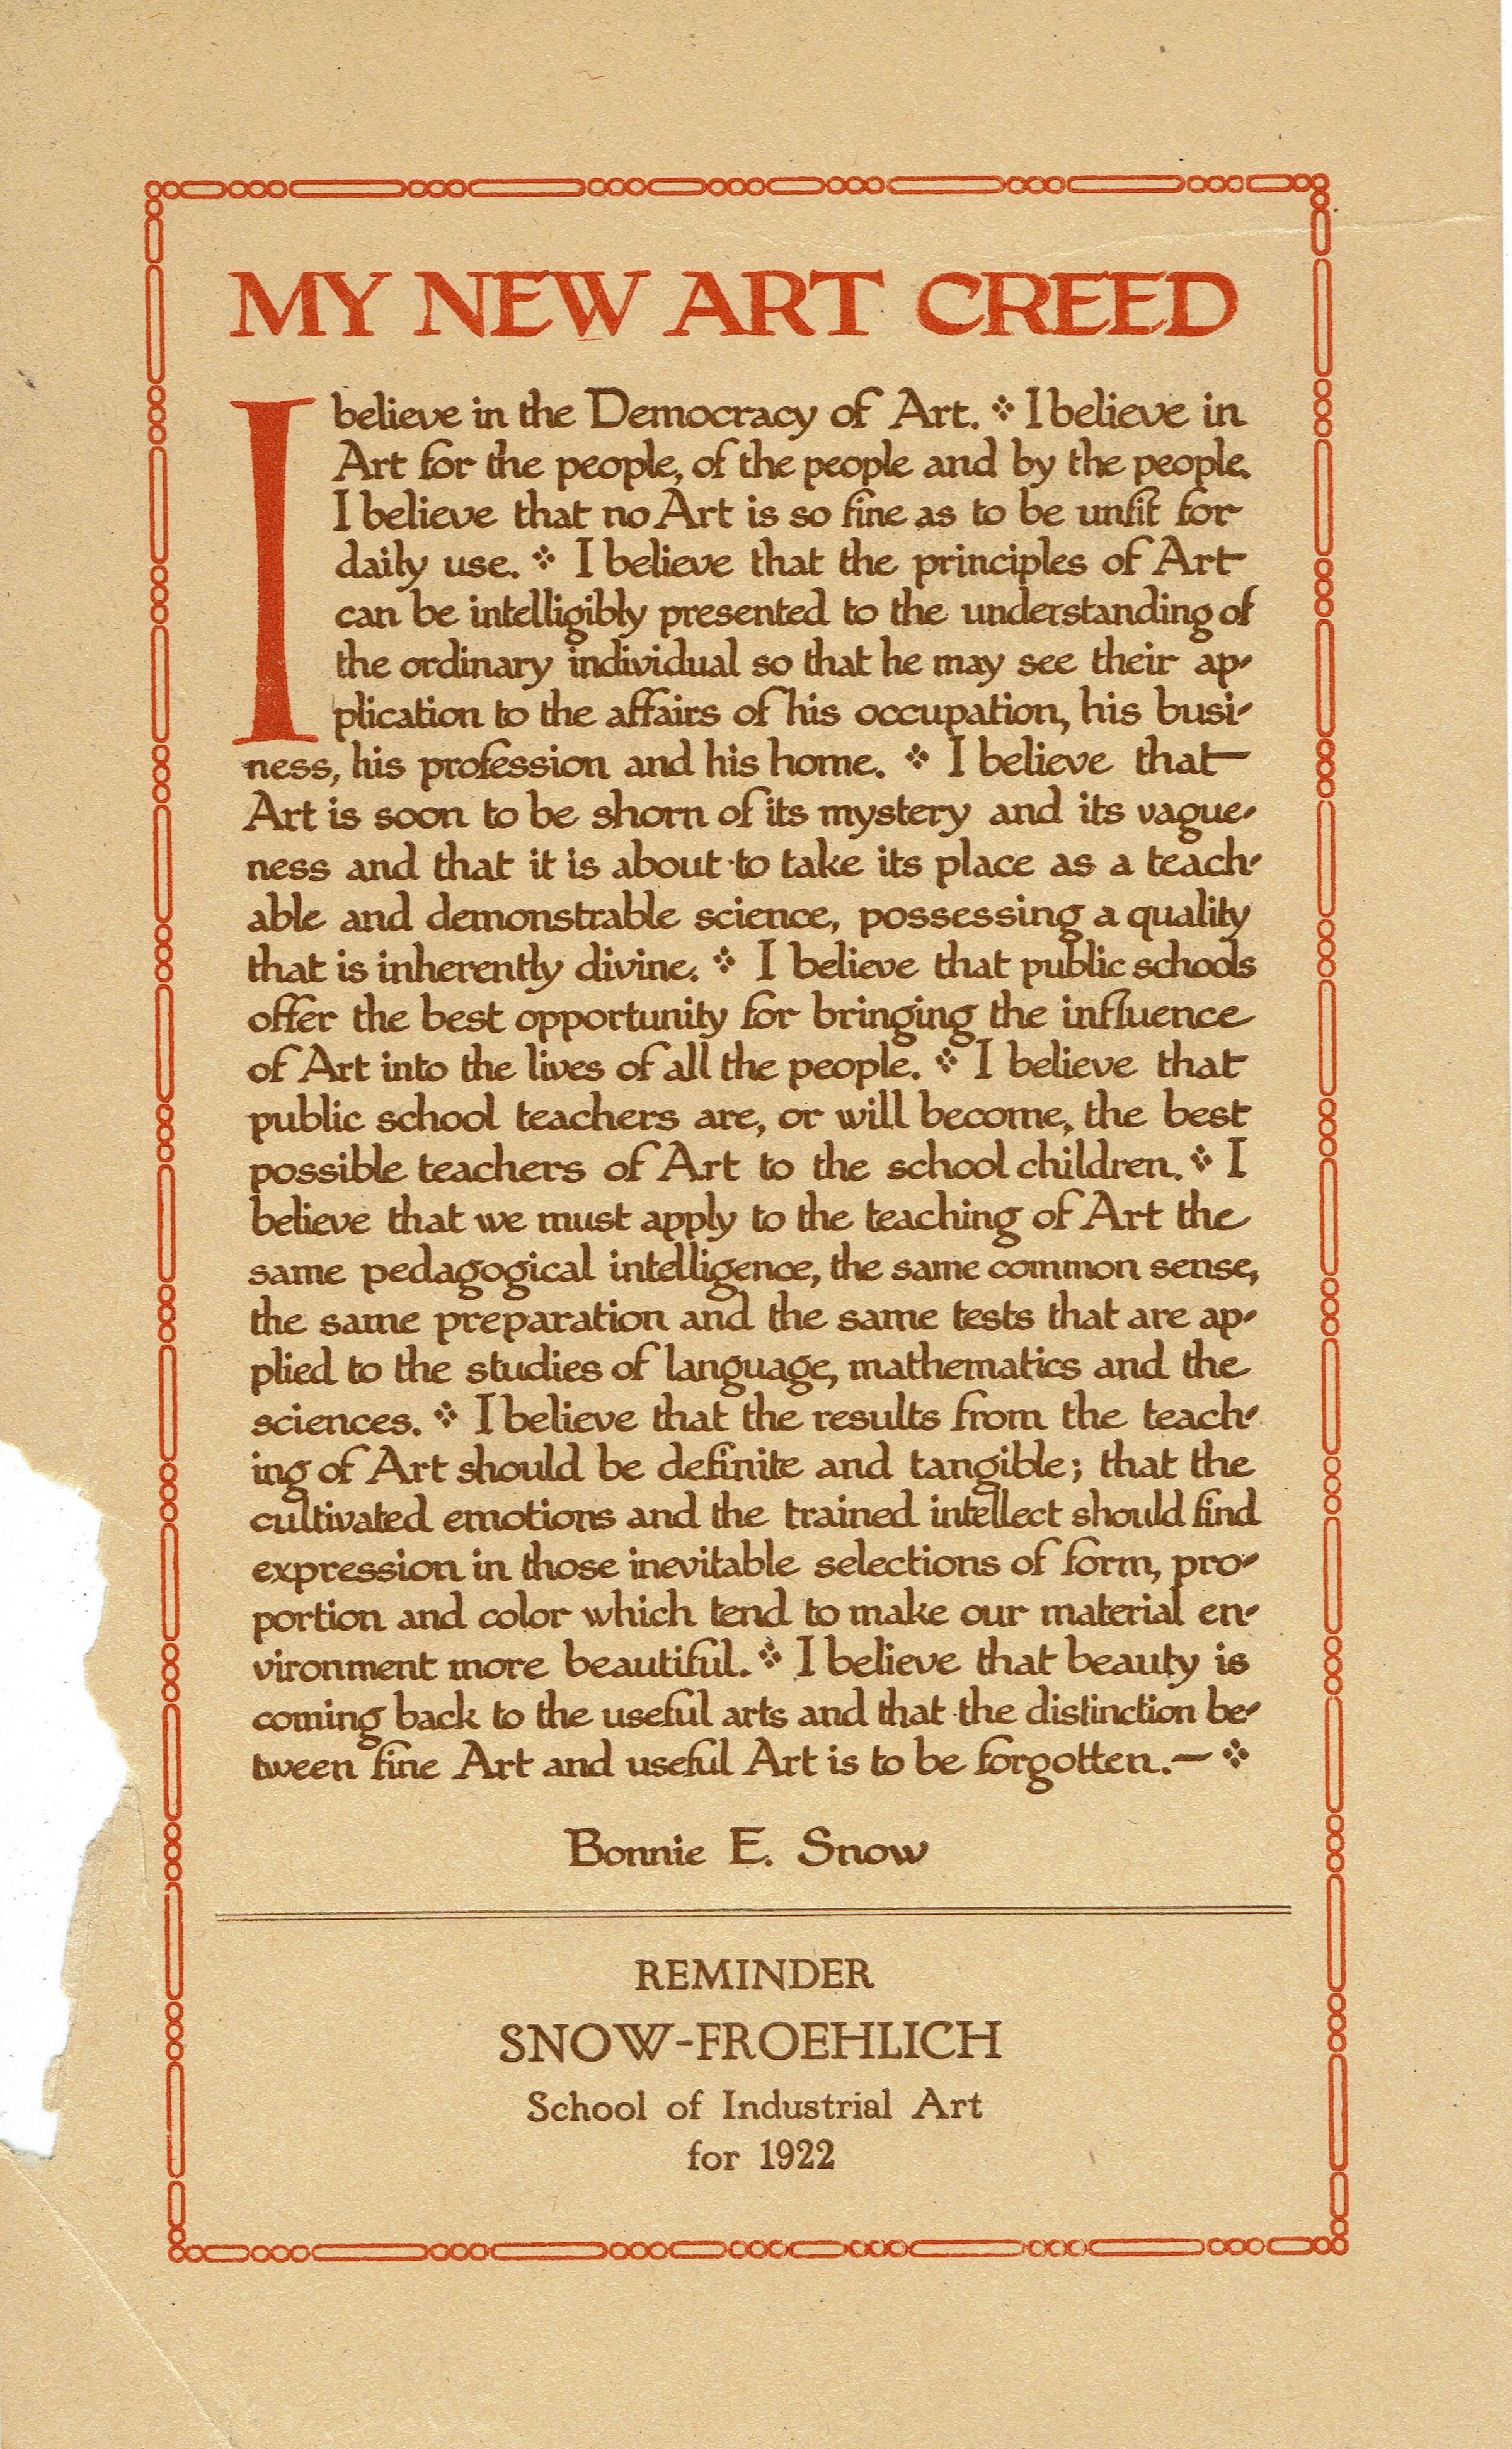 MY NEW ART CREED
I believe in the Democracy of Art. ❖ I believe in
Art for the people, of the people and by the people.
I believe that no Art is so fine as to be unfit for
daily use. ❖ I believe that the principles of Art
can be intelligibly presented to the understanding of
the ordinary individual so that he may see their ap-
plication to the affairs of his occupation, his busi-
ness, his profession and his home. ❖ I believe that
Art is soon to be shorn of its mystery and its vague-
ness and that it is about to take its place as a teach-
able and demonstrable science, possessing a quality
that is inherently divine. ❖ I believe that public schools
offer the best opportunity for bringing the influence
of Art into the lives of all the people. ❖ I believe that
public school teachers are, or will become, the best
possible teachers of Art to the school children. ❖ I
believe that we must apply to the teaching of Art the
same pedagogical intelligence, the same common sense,
the same preparation and the same tests that are ap-
plied to the studies of language, mathematics and the
sciences. ❖ I believe that the results from the teach-
ing of Art should be definite and tangible; that the
cultivated emotions and the trained intellect should find
expression in those inevitable selections of form, pro-
portion and color which tend to make our material en-
vironment more beautiful. ❖ I believe that beauty is
coming back to the useful arts and that the distinction be-
tween fine Art and useful Art is to be forgotten.— ❖
Bonnie E. Snow
REMINDER
SNOW-FROEHLICH
School of Industrial Art
for 1922